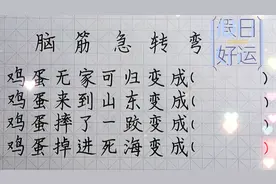 脑筋急转弯
假日
好运
鸡蛋无家可归变成(    )
鸡蛋来到山东变成(    )
鸡蛋摔了一跤变成(    )
鸡蛋掉进死海变成(    )